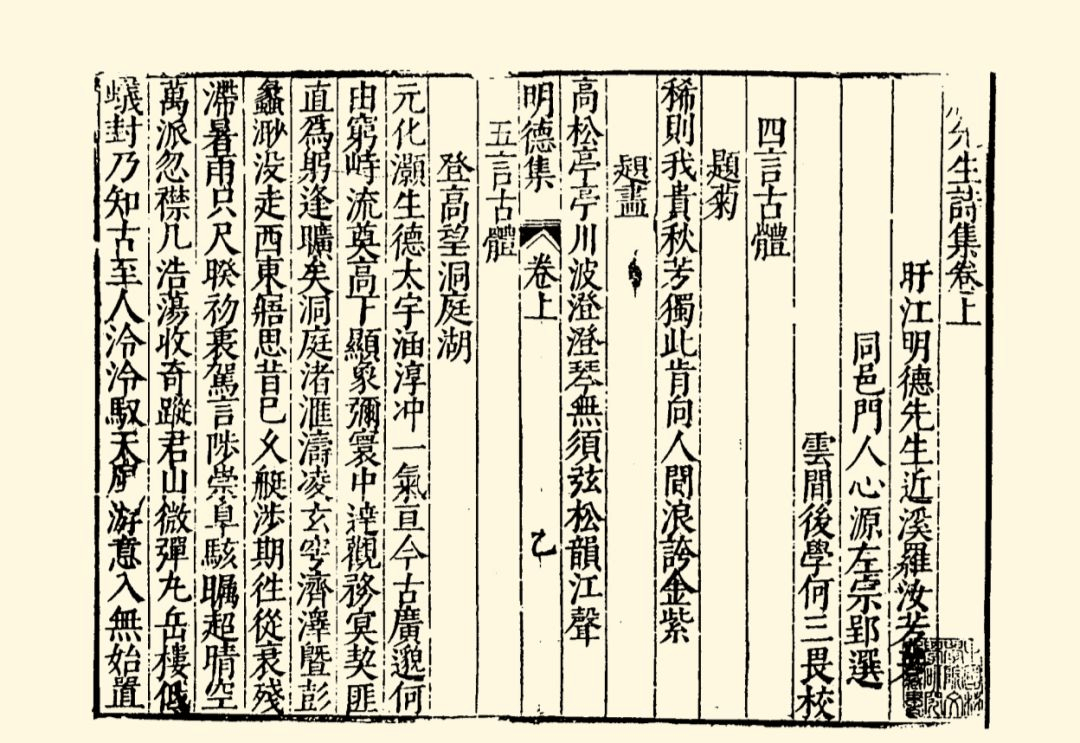 先生詩集卷上
盱江明德先生近溪羅汝芳
同邑門人心源左宗郢選
雲間後學何三畏校
四言古體
題菊
稀則我貴秋芳獨此肯向人間浪誇金紫
題畫
高松亭亭川波澄澄琴無須弦松韻江聲
明德集 卷上 乙
五言古體
登高望洞庭湖
元化灝生德太宇涵淳冲一氣亘今古廣邈何
由窮峙流奠高下顯象彌寰中達觀務冥契匪
直為躬逢曠矣洞庭渚滙濤凌玄穹濟澤暨彭
蠡渺没走西東寤思昔已久艇涉期徃從衰殘
滯暑雨只尺暌礽裏駕言陟崇阜駭矚超晴空
萬派忽襟几浩蕩收奇蹤君山微彈丸岳樓低
蟻封乃知古至人泠泠馭天 游意入無始置